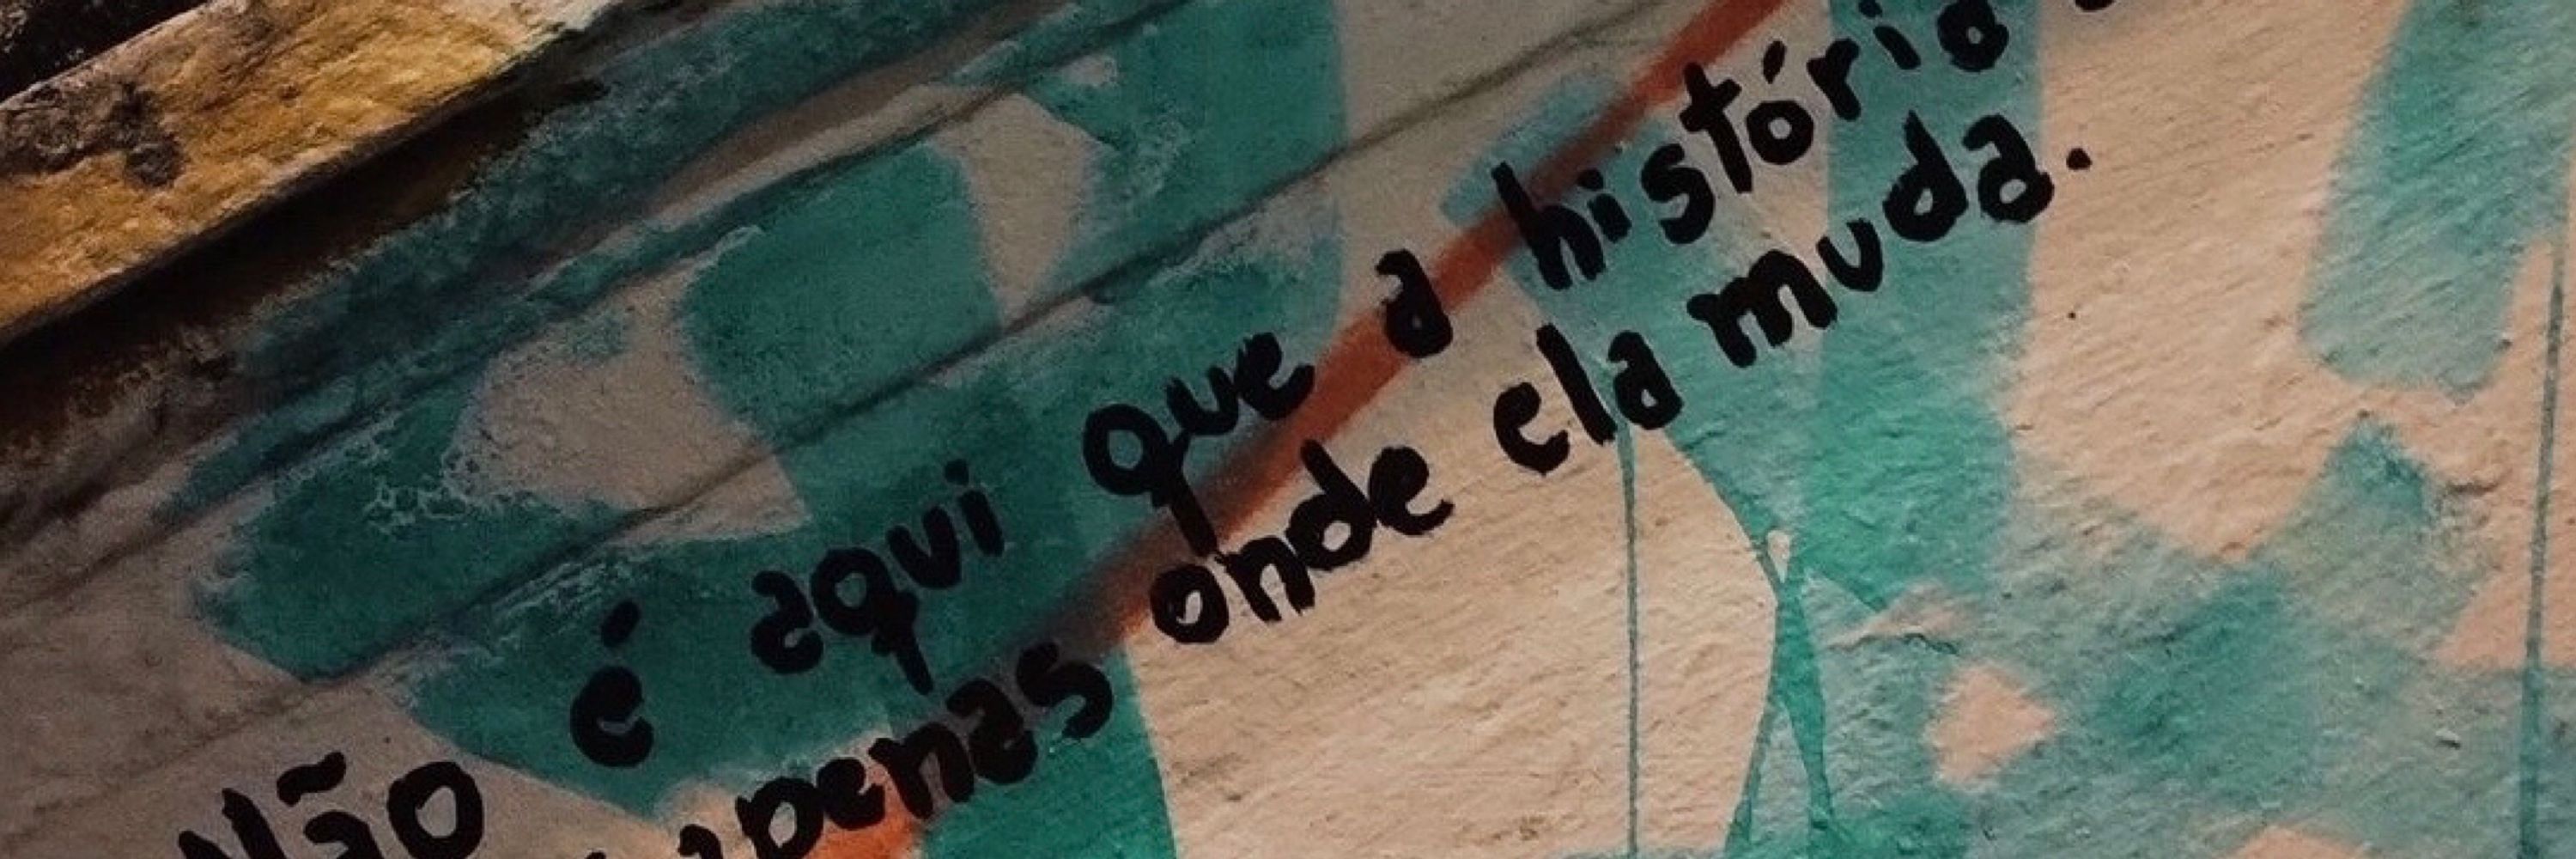 Não é aqui que a história
apenas onde ela muda.